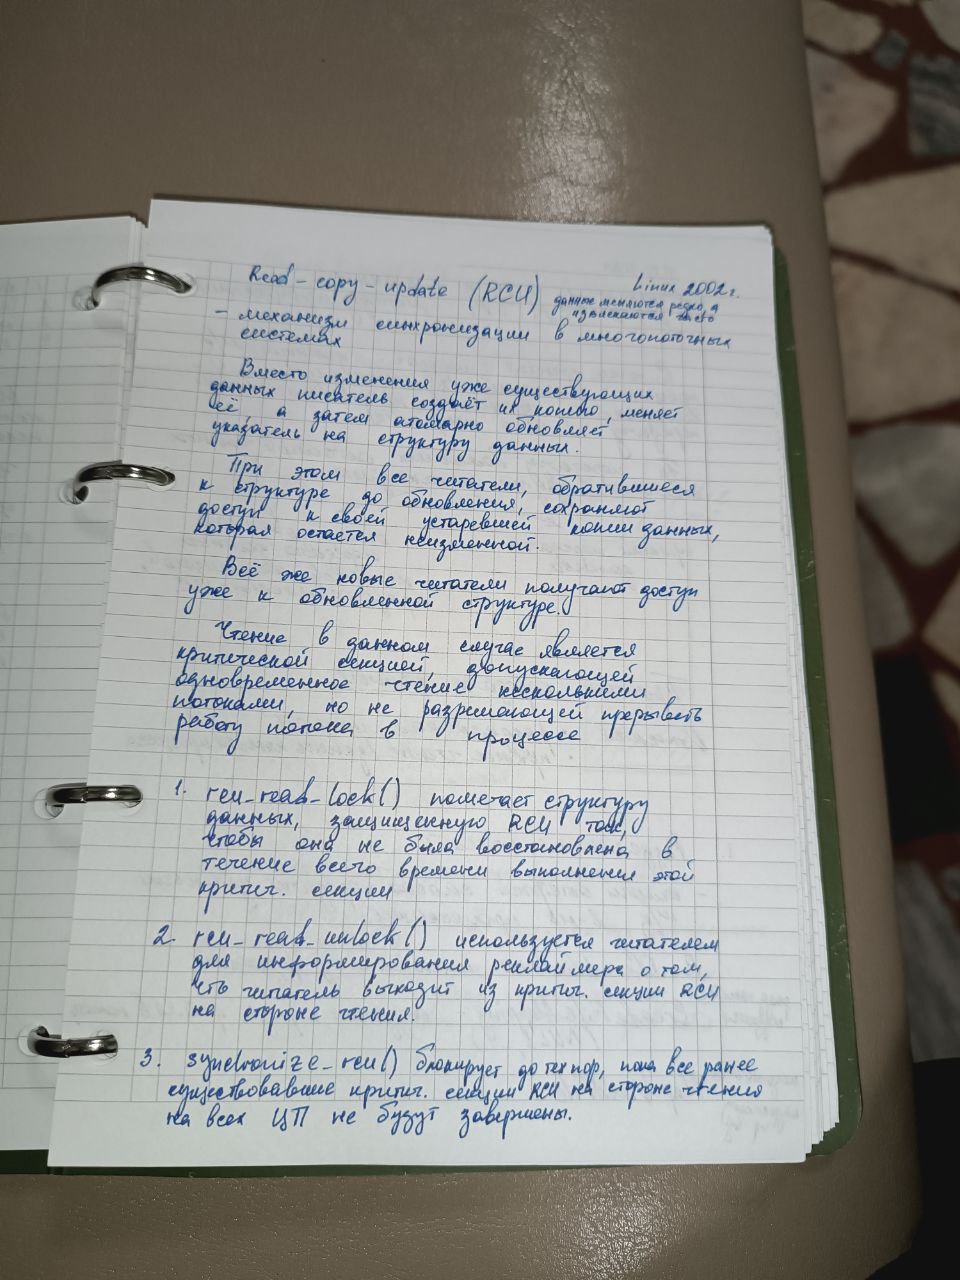 Read-copy-update (RCU) Linux 2002г.
данные меняются редко, а
извлекаются часто
- механизм синхронизации в многопоточных
системах
Вместо изменения уже существующих
данных писатель создаёт их копию, меняет
её, а затем атомарно обновляет
указатель на структуру данных.
При этом все читатели, обратившиеся
к структуре до обновления, сохраняют
доступ к своей устаревшей копии данных,
которая остается неизменной.
Всё же новые читатели получают доступ
уже к обновленной структуре.
Чтение в данном случае является
критической секцией, допускающей
одновременное чтение несколькими
потоками, но не разрешающей прерывать
работу потока в процессе
1. rcu_read_lock() помечает структуру
данных, защищенную RCU так,
чтобы она не была восстановлена в
течение всего времени выполнения этой
критич. секции
2. rcu_read_unlock() используется читателем
для информирования реклаймера о том,
что читатель выходит из критич. секции RCU
на стороне чтения.
3. synchronize_rcu() блокирует до тех пор, пока все ранее
существовавшие критич. секции RCU на стороне чтения
на всех ЦП не будут завершены.